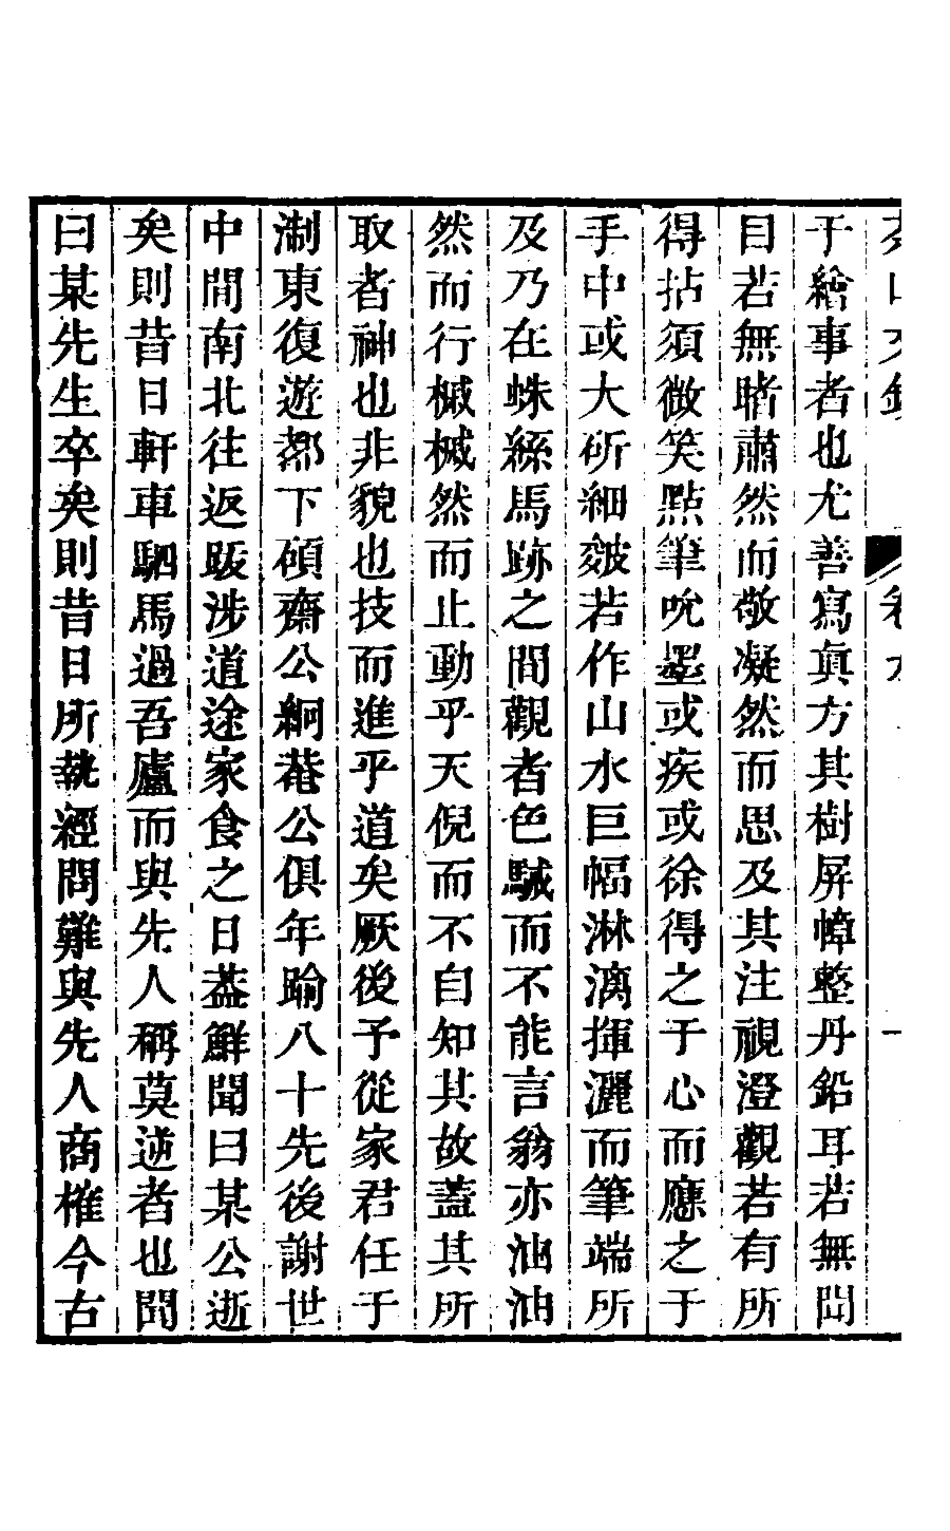 于繪事者也尤善寫眞方其樹屏幛整丹鉛耳若無聞
目若無睹肅然而敬凝然而思及其注視澄觀若有所
得拈須微笑點筆吮墨或疾或徐得之于心而應之于
手中或大斫細皴若作山水巨幅淋漓揮灑而筆端所
及乃在蛛絲馬跡之間觀者色駴而不能言翁亦油油
然而行槭槭然而止動乎天倪而不自知其故蓋其所
取者神也非貌也技而進乎道矣厥後予從家君任于
淛東復遊都下碩齋公絅菴公俱年踰八十先後謝世
中間南北往返跋涉道途家食之日葢鮮聞曰某公逝
矣則昔日軒車駟馬過吾廬而與先人稱莫逆者也聞
曰某先生卒矣則昔日所執經問難與先人商榷今古